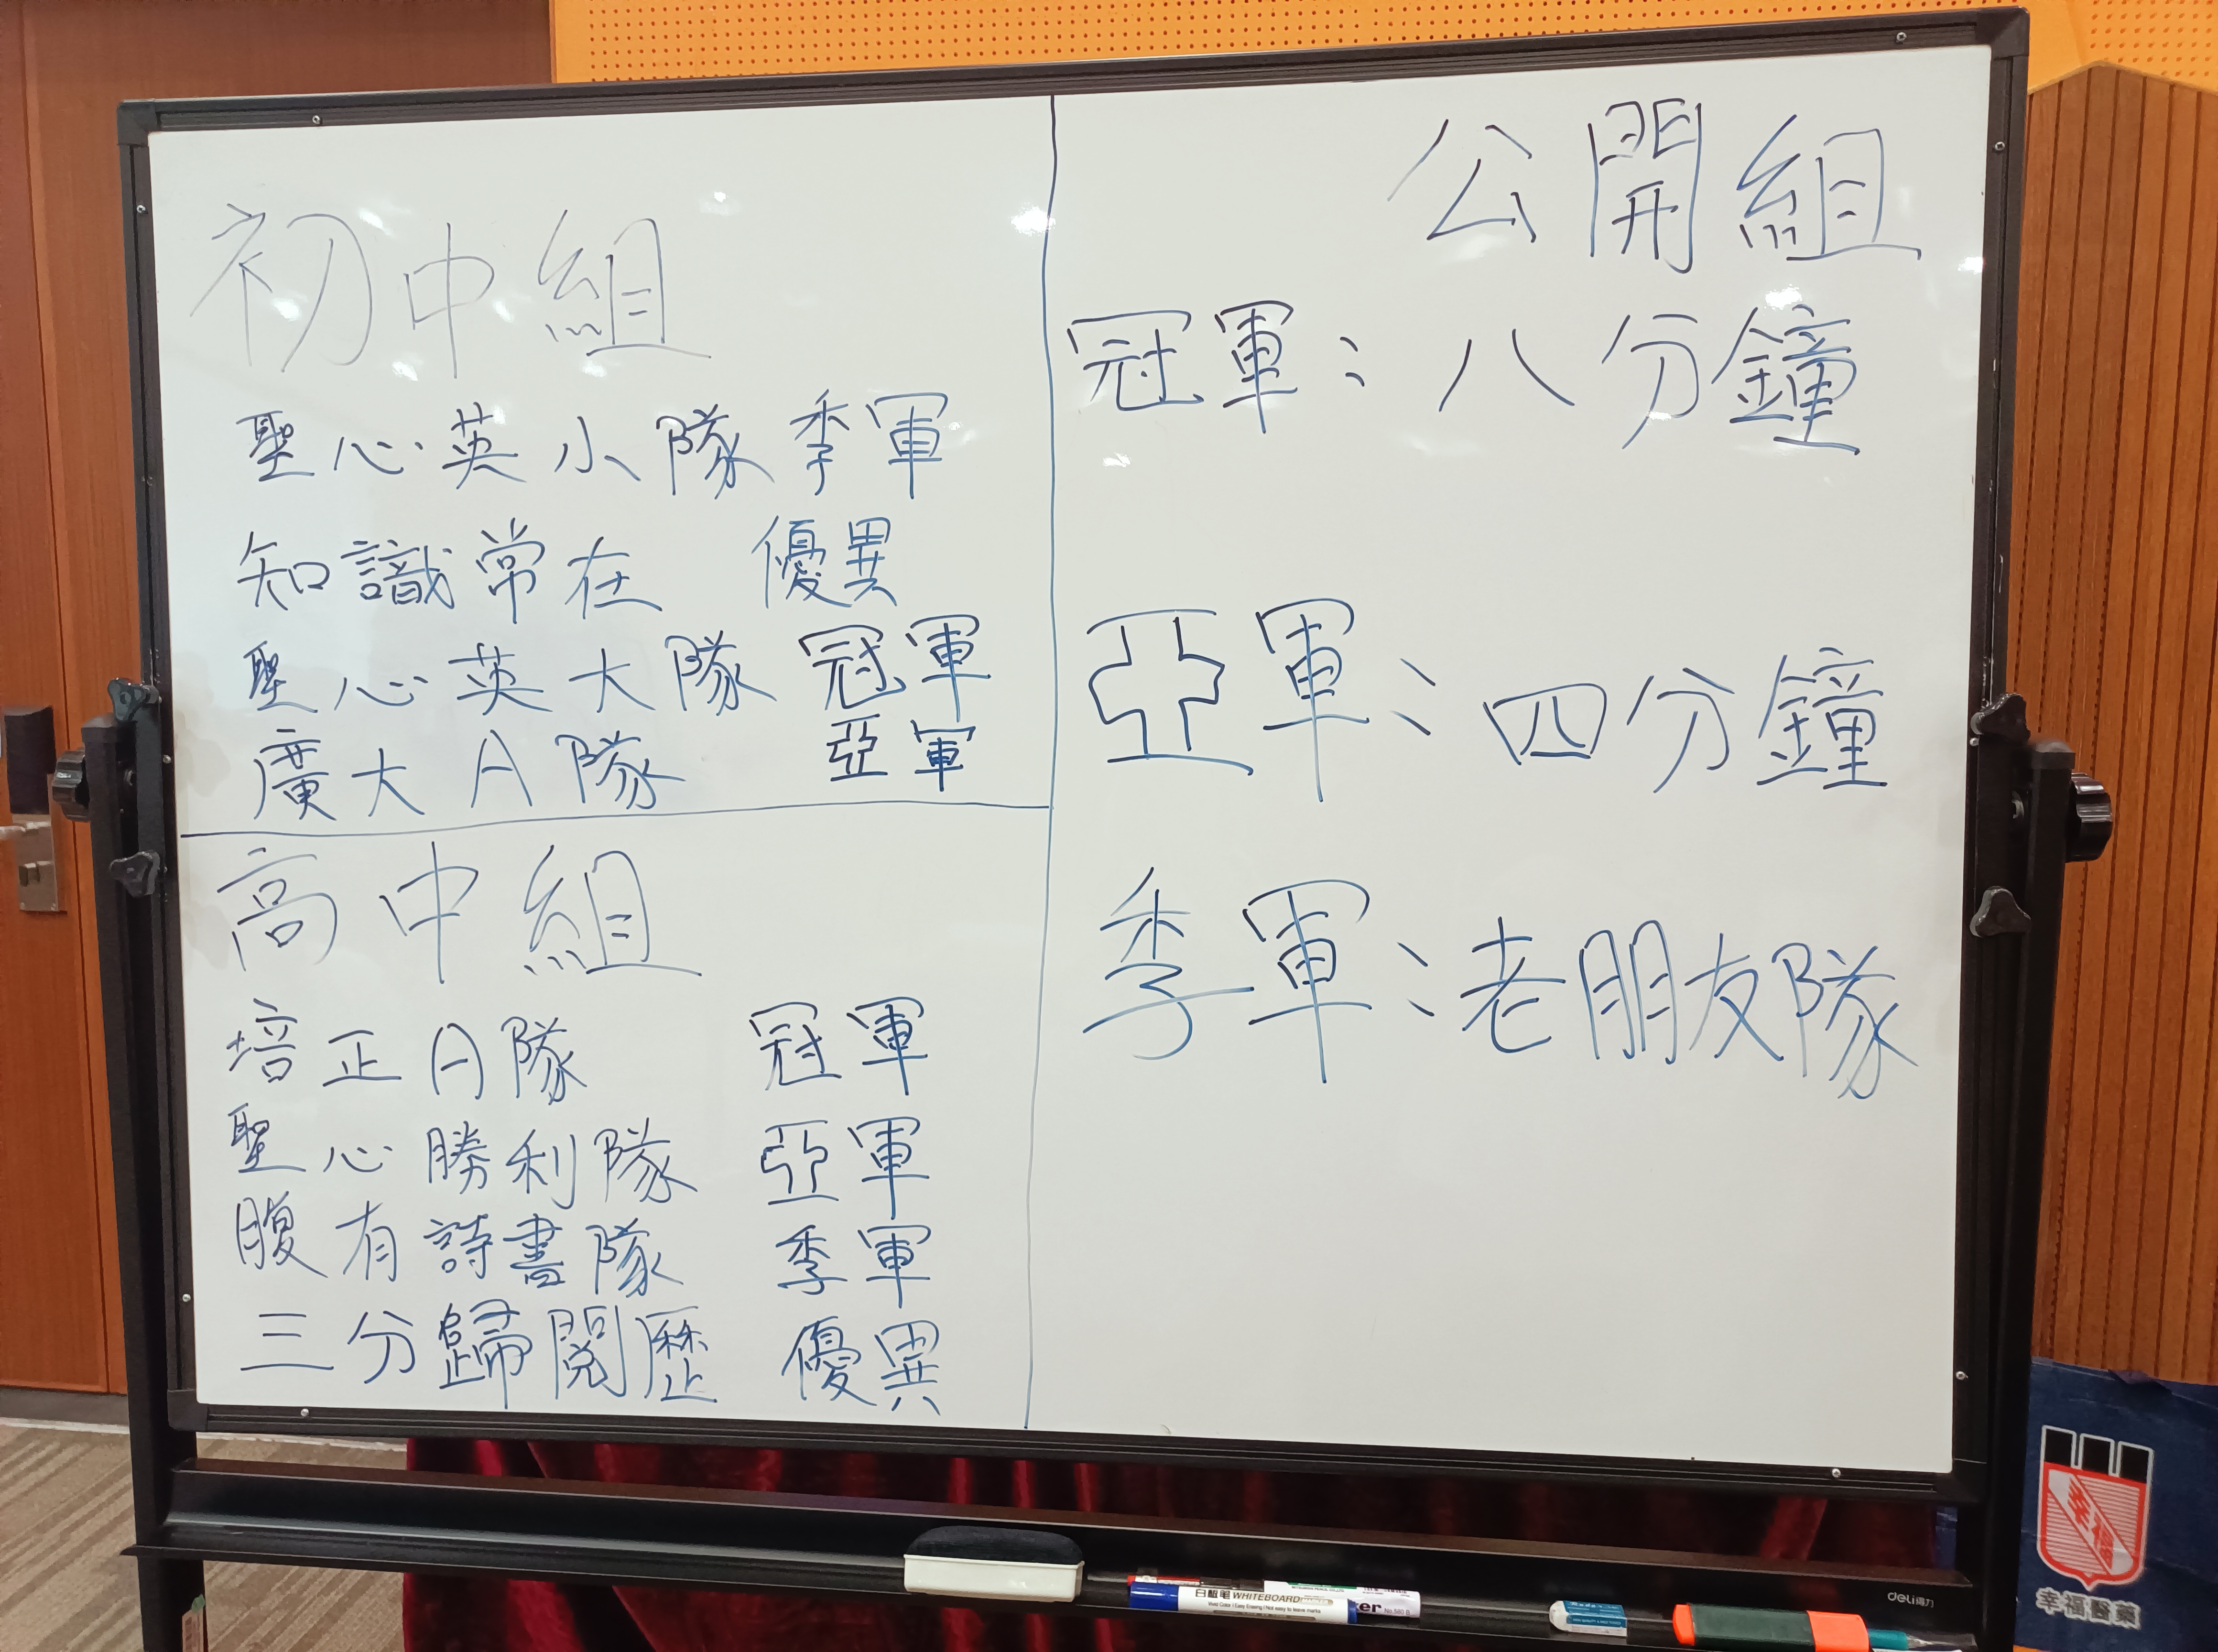 初中組
聖心英小隊 季軍
知識常在 優異
聖心英大隊 冠軍
廣大A隊 亞軍
高中組
培正A隊 冠軍
聖心勝利隊 亞軍
腹有詩書隊 季軍
三分歸閱歷 優異
公開組
冠軍：八分鐘
亞軍：四分鐘
季軍：老朋友隊
deli得力
白板笔 WHITEBOARD
幸福醫藥